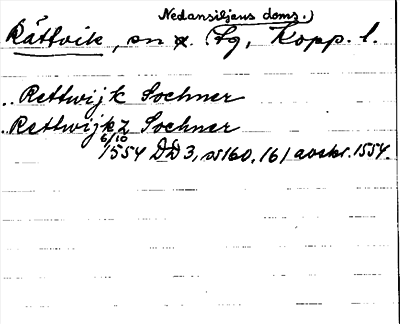 Nedansiljens doms.)
Rättvik, sn (tg, Kopp. l.
.. Rettwijk Sochner
.. Rettwijkz Sochner
6/10 1554 DD 3, s 160, 161 avskr. 1554.